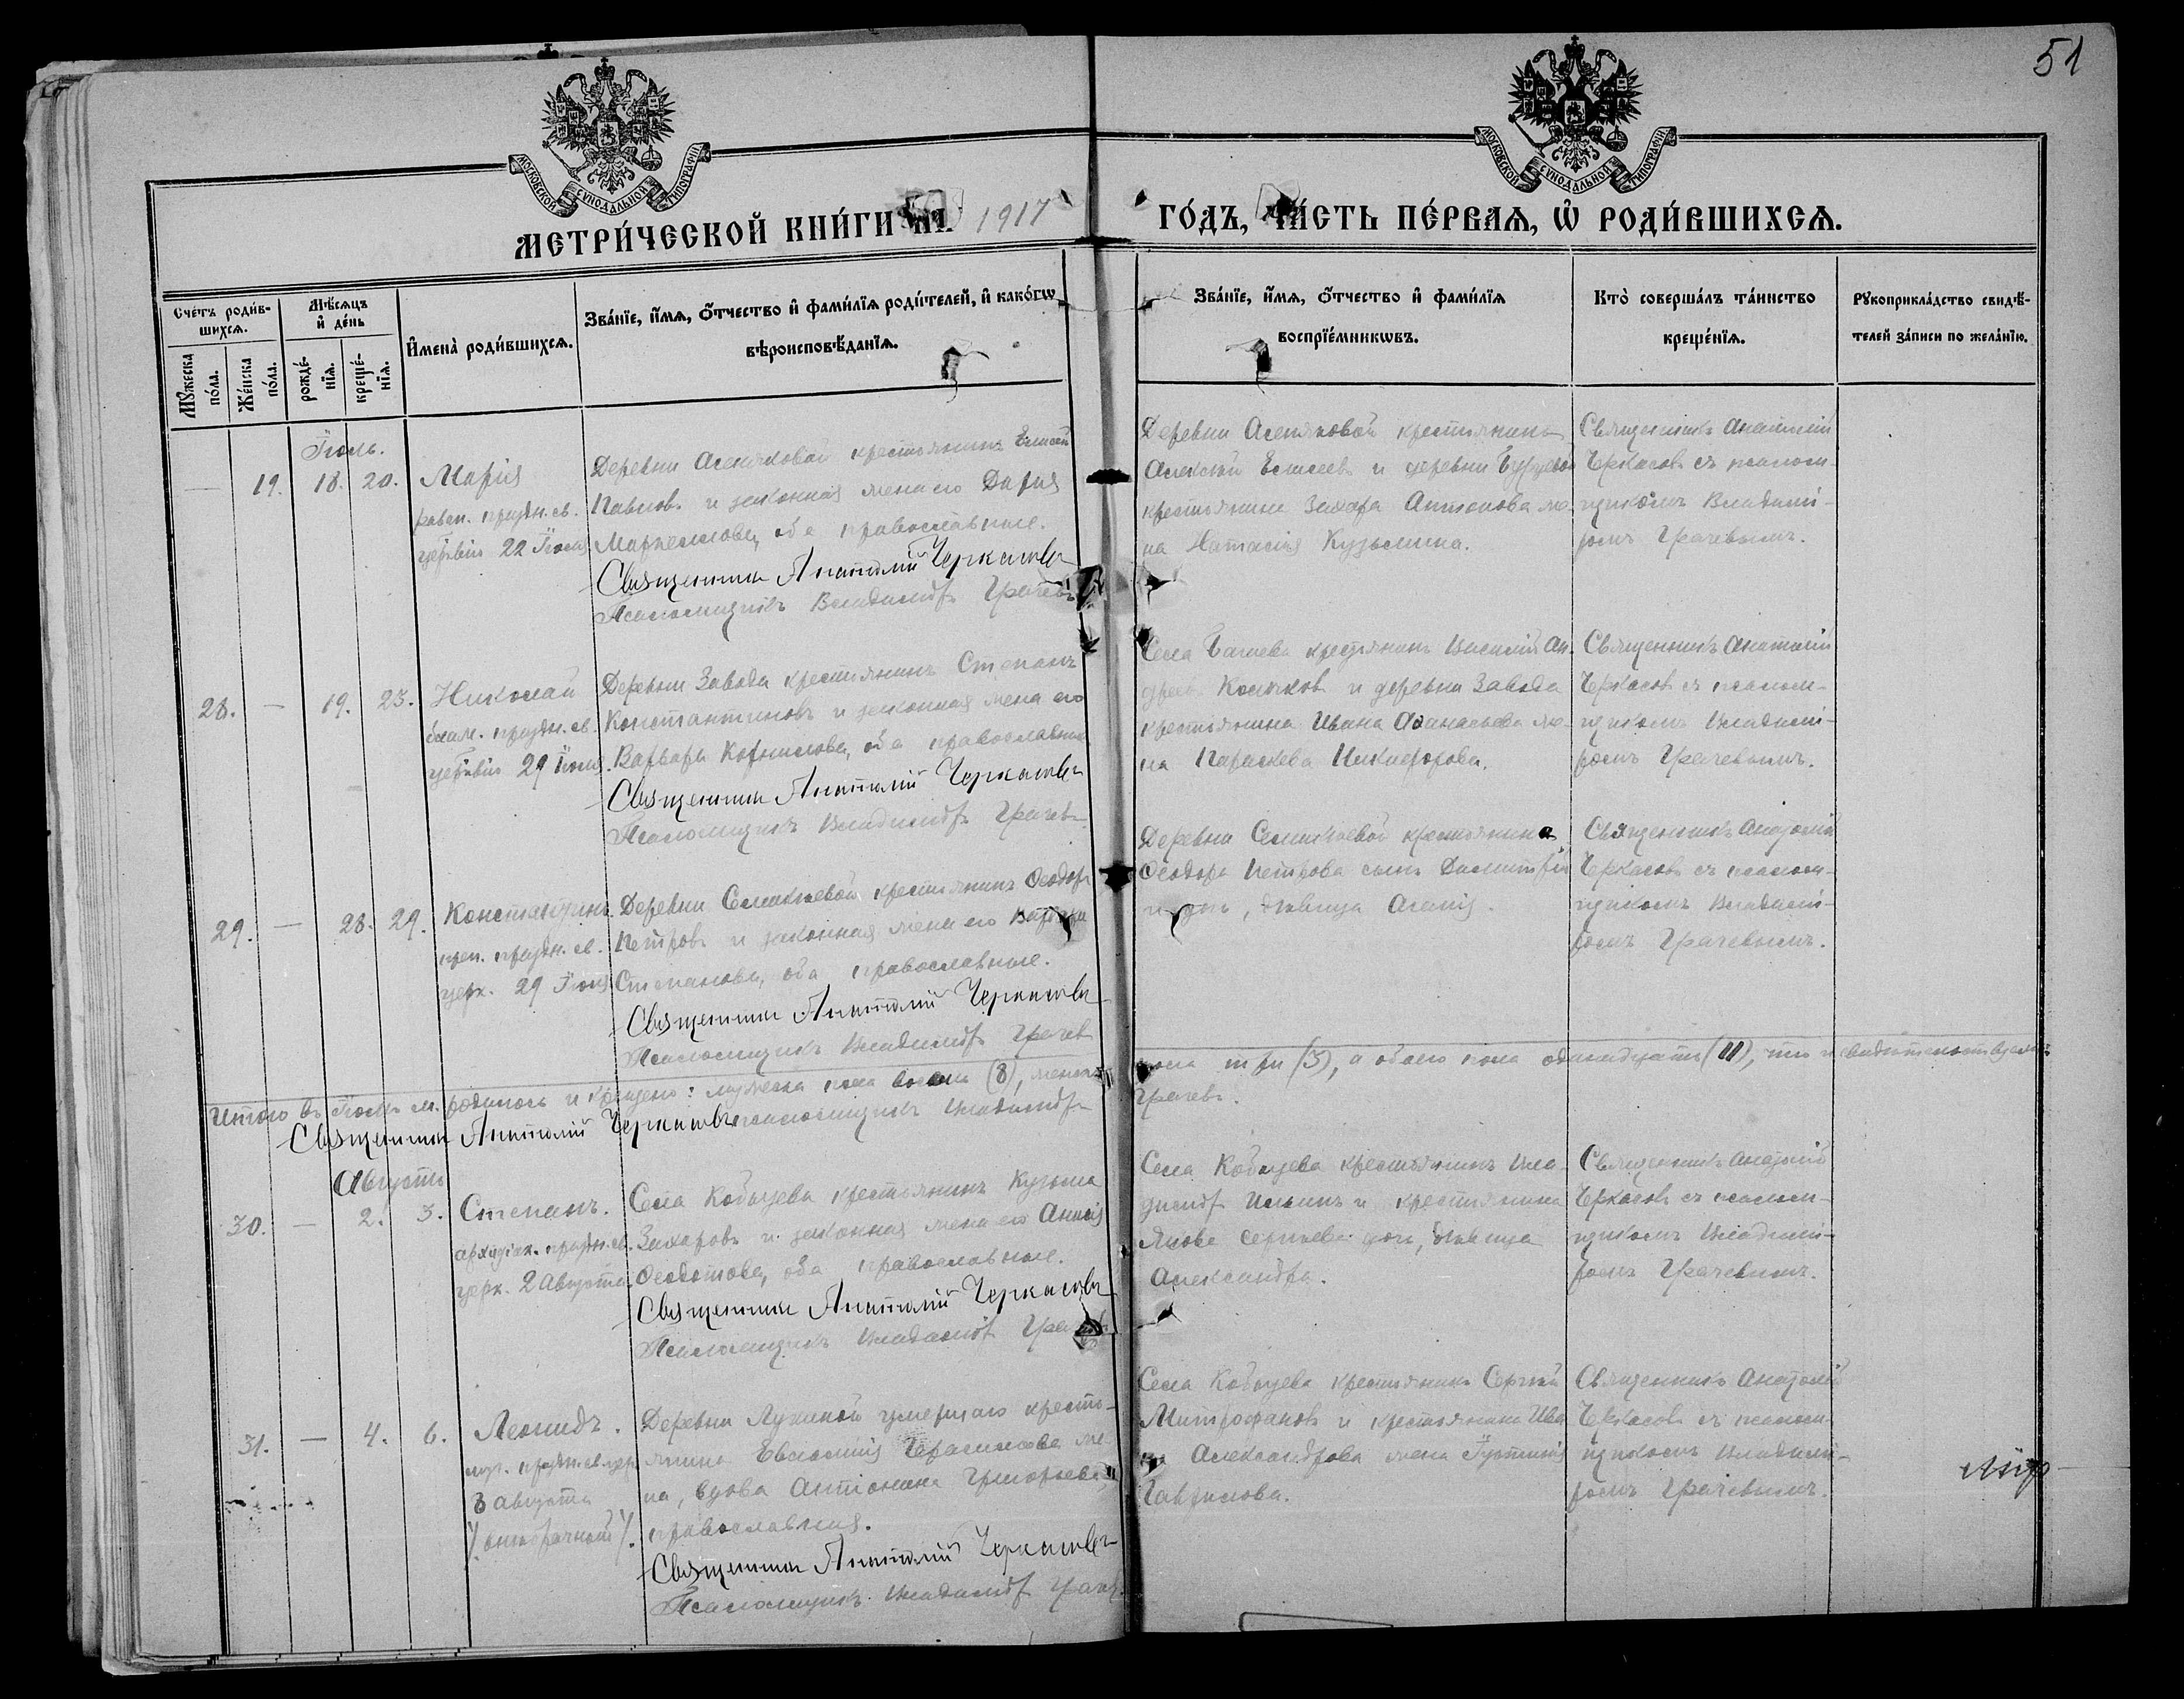 51
МОСКОВСКОЙ СУНОДАЛЬНОЙ ТИПОГРАФІИ
МОСКОВСКОЙ СУНОДАЛЬНОЙ ТИПОГРАФІИ
МЕТРИ́ЧЕСКОЙ КНИ́ГИ НА 1917
ГО́ДЪ, ЧА́СТЬ ПЕ́РВАѦ, Ѡ҆ РОДИ́ВШИХСѦ.
Сче́тъ роди́в-
шихсѧ.
Мѣ́сѧцъ
и҆ де́нь
И҆мена̀ роди́вшихсѧ.
Зва́нїе, и҆́мѧ, ѻ҆́тчество и҆ фами́лїѧ роди́телей, и҆ како́гѡ
вѣроисповѣ́данїѧ.
Мꙋ́жеска
по́ла.
Же́нска
по́ла.
рожде́-
нїѧ.
креще́-
нїѧ.
Зва́нїе, и҆́мѧ, ѻ҆́тчество и҆ фами́лїѧ
воспрїе́мникѡвъ.
Кто̀ соверша́лъ та́инство
креще́нїѧ.
Рꙋкоприкла́дство свидѣ́-
телей за́писи по жела́нїю.
Іюль.
— 19. 18. 20. Марія
равноап. праздн. св.
церковію 22 Іюля
Деревни крестьянинъ Елисей
Павловъ и законная жена его Дарія
Маркеллова, обе православные.
Священникъ Анатолій Черкасовъ
Псаломщикъ Владиміръ Грачевъ
Деревни крестьянинъ
Алексій Елисеевъ и деревни
крестьянина Захара Антонова же-
на Наталія Кузьмина.
Священникъ Анатолій
Черкасовъ съ псалом-
щикомъ Владимі-
ромъ Грачевымъ.
28. — 19. 23. Николай
блаж. праздн. св.
церковію 29 Іюля.
Деревни Завода крестьянинъ Степанъ
Константиновъ и законная жена его
Варвара Корнилова, оба православные
Священникъ Анатолій Черкасовъ
Псаломщикъ Владиміръ Грачевъ
Села крестьянинъ Василій Ан-
дреев. и деревни Завода
крестьянина Ивана Аѳанасьева же-
на Параскева Никифорова.
Священникъ Анатолій
Черкасовъ съ псалом-
щикомъ Владимі-
ромъ Грачевымъ.
29. — 28. 29. Константинъ
праздн. св.
церк. 29 Іюля
Деревни Семикеевой крестьянинъ Ѳеодоръ
Петровъ и законная жена его Варвара
Степанова, оба православные.
Священникъ Анатолій Черкасовъ
Псаломщикъ Владиміръ Грачев
Деревни Семикеевой крестьянина
Ѳеодора Петрова сынъ Димитрій
дочь, дѣвица
Священникъ Анатолій
Черкасовъ съ псалом-
щикомъ Владимі-
ромъ Грачевымъ.
Итого въ Іюлѣ м. родилось и крещено: мужеска пола восемь (8), женска
пола три (3), а обоего пола одиннадцать (11), что и свидетельствуемъ:
Священникъ Анатолій Черкасовъ псаломщикъ Владиміръ
Грачевъ.
Августъ
30. — 2. 3. Степанъ.
архидіак. праздн. св.
церк. 2 Августа
Села Кобылева крестьянинъ Кузьма
Захаровъ и законная жена его Анисія
Ѳеодотова, оба православные.
Священникъ Анатолій Черкасовъ
Псаломщикъ Владиміръ
Села Кобылева крестьянинъ Вла-
диміръ Ильинъ и крестьянина
Якова Сергѣева дочь, дѣвица
Александра.
Священникъ Анатолій
Черкасовъ съ псалом-
щикомъ Владимі-
ромъ Грачевымъ.
31. — 4. 6. Леонидъ.
муч. праздн. св. цер
8 августа
Деревни умершаго кресть-
янина Евсломпія Герасимова же-
на, вдова Антонина Григорьева,
православная.
Священникъ Анатолій Черкасовъ
Псаломщикъ Владиміръ
Села Кобылева крестьянинъ Сергѣй
Митрофановъ и крестьянина Ива-
на Александрова жена Іустинія
Гаврилова.
Священникъ Анатолій
Черкасовъ съ псалом-
щикомъ Владимі-
ромъ Грачевымъ.